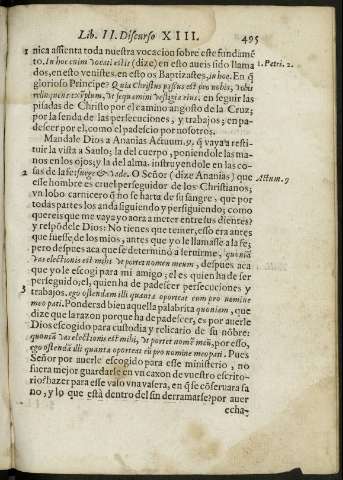 Lib. II. Discurso XIII.
495
1 nica assienta toda nuestra vocacion sobre este fundamẽ
to. In hoc enim vocati estis (dize) en esto aueis sido llama
1. Petri. 2.
dos, en esto venistes, en esto os Baptizastes, in hoc. En q̃
glorioso Principe? Quia Christus passus est pro nobis, vobis
relinquens exẽplum, vt sequamini vestigia eius, en seguir las
pisadas de Christo por el camino angosto de la Cruz;
por la senda de las persecuciones, y trabajos; en pa-
descer por el, como el padescio por nosotros.
Mandale Dios a Ananias Actuum. 9, q̃ vaya a resti-
tuir la vista a Saulo; la del cuerpo, poniendole las ma-
nos en los ojos; y la del alma, instruyendole en las co
2 sas de la fe: surge & vade. O Señor (dize Ananias) que
Actum. 9
esse hombre es cruel perseguidor de los Christianos;
vn lobo carnicero q̃ no se harta de su sangre, que por
todas partes los anda siguiendo y persiguiendo; como
quereis que me vaya yo aora a meter entre sus dientes?
y respõdele Dios: No tienes que temer, esso era antes
que fuesse de los mios, antes que yo le llamasse a la fe;
pero despues aca que se determinò a seruirme, quoniã
vas electionis est mihi, vt portet nomen meum, despues aca
que yo le escogi para mi amigo; el es quien ha de ser
perseguido; el, quien ha de padescer persecuciones y
3 trabajos, ego ostendam illi quanta oporteat eum pro nomine
meo pati. Ponderad bien aquella palabrita quoniam, que
dize que la razon porque ha de padescer, es por auerle
Dios escogido para custodia y relicario de su nõbre:
quoniã vas electionis est mihi, vt portet nomẽ meũ, por esso,
ego ostendã illi quanta oporteat eũ pro nomine meo pati. Pues
Señor por auerle escogido para esse ministerio, no
fuera mejor guardarle en vn caxon de vuestro escrito-
rio? hazer para esse vaso vna vasera, en q̃ se cõseruara sa
no, y lo que està dentro del sin derramarse? por auer
echa-